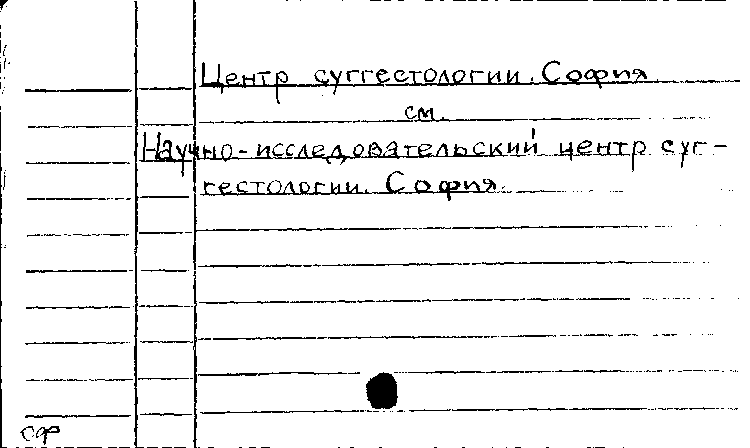 Центр суггестологии. София
см.
Научно-исследовательский центр суг-
гестологии. София.
СФ